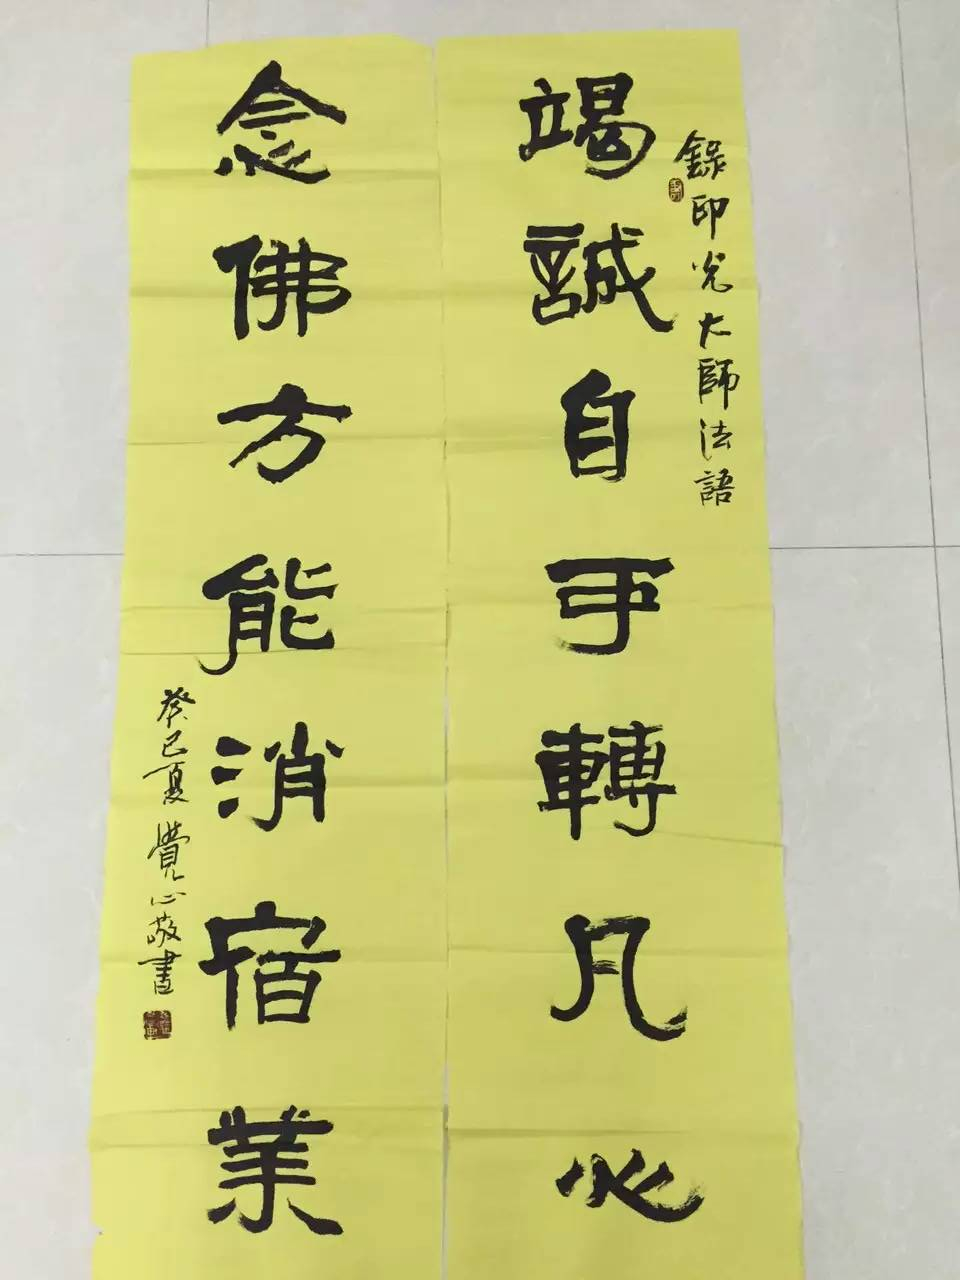 錄印光大師法語
竭誠自可轉凡心
念佛方能消宿業
癸巳夏覺心敬書